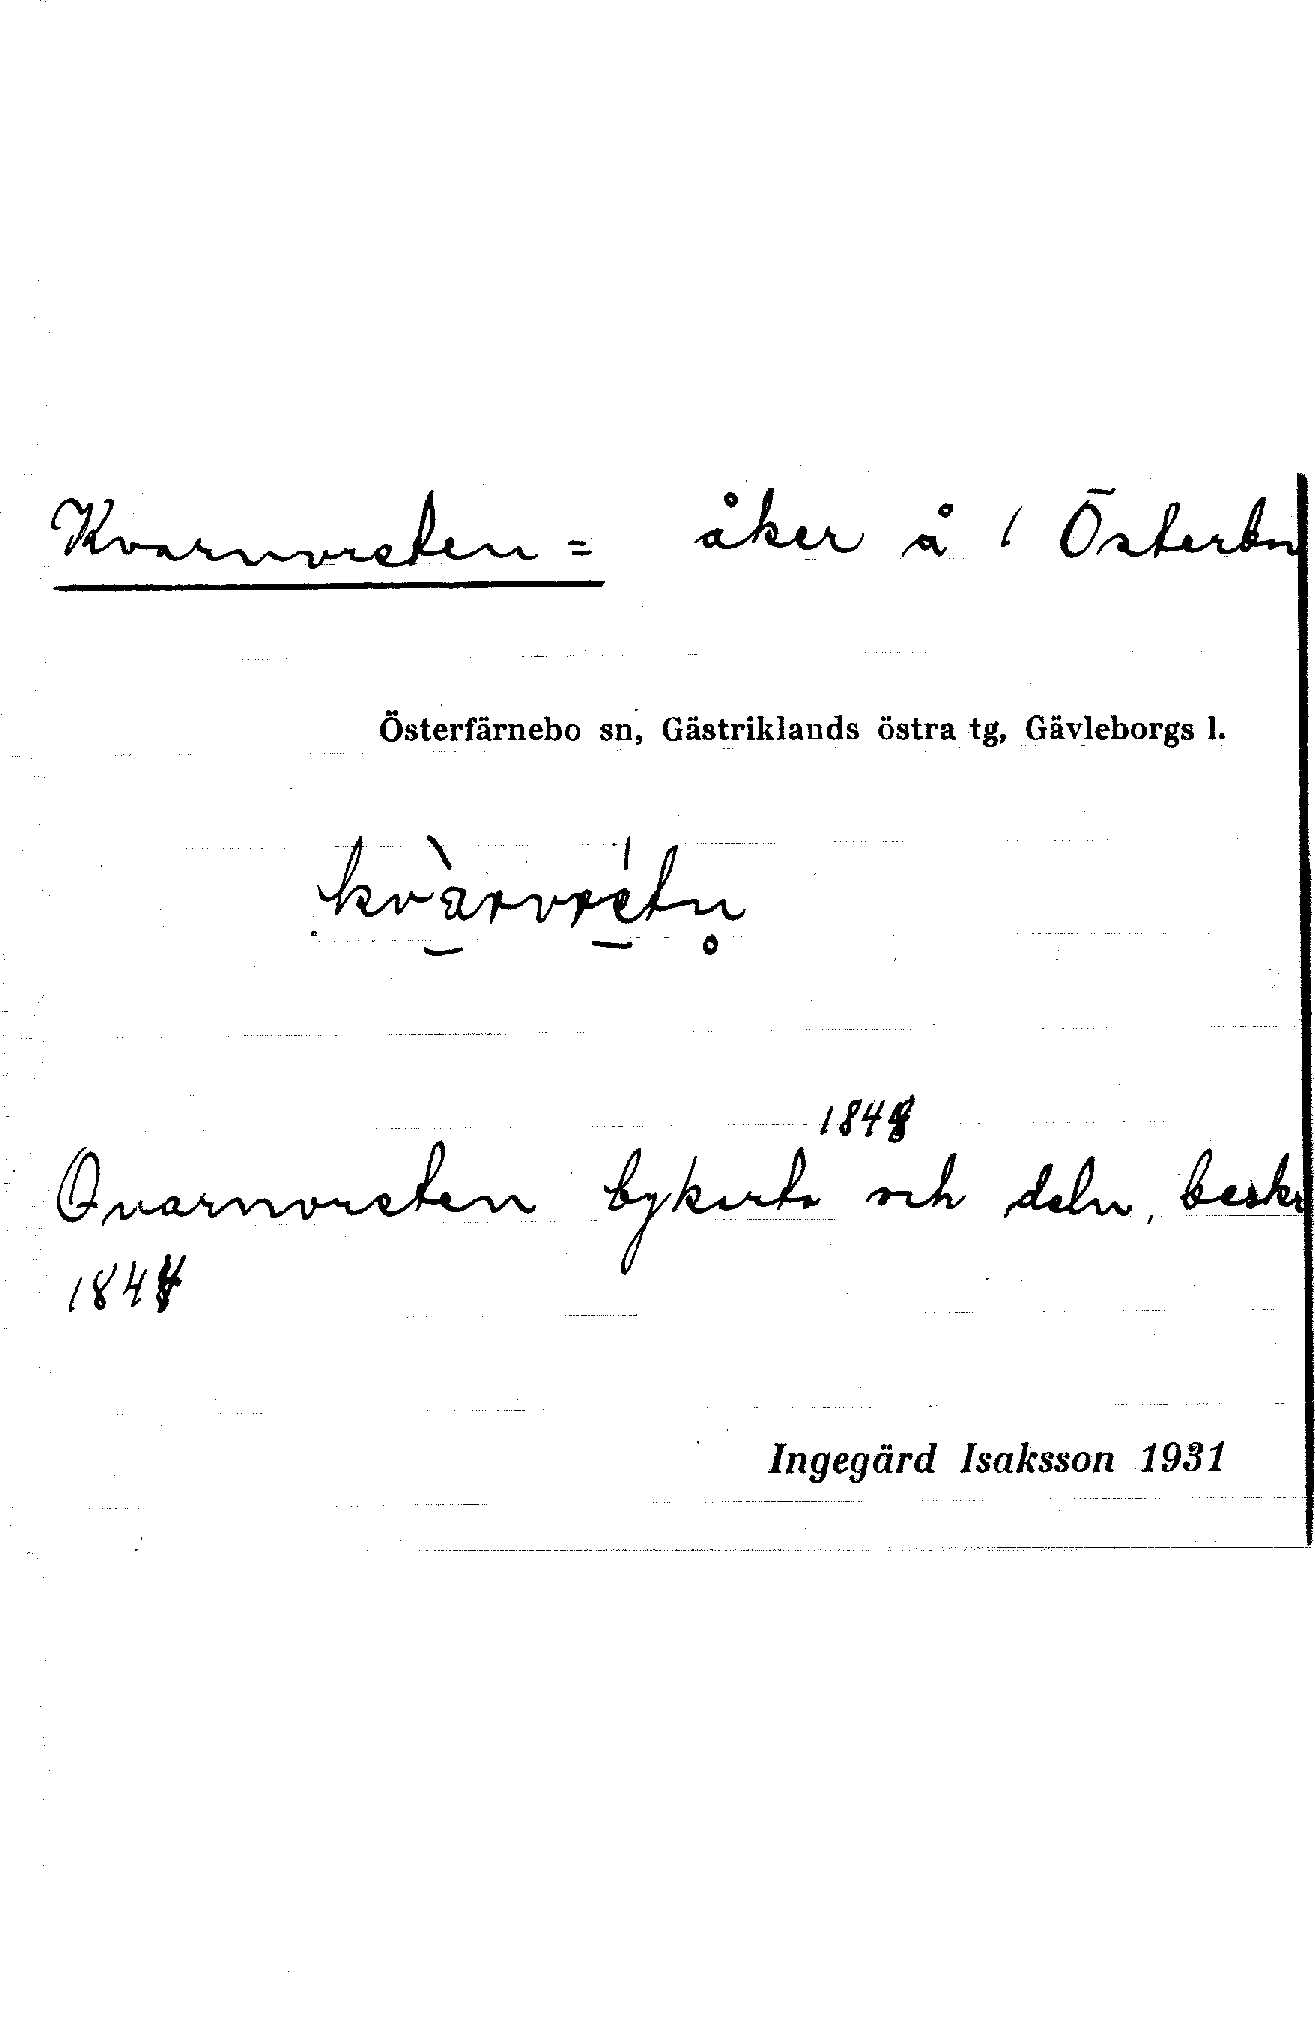 Kvarnvreten = åker å 1 Österbn
Österfärnebo sn, Gästriklands östra tg, Gävleborgs l.
kvàrvrétn̥
1848
Qvarnvreten bykarta och deln, beskr
1844
Ingegärd Isaksson 1931